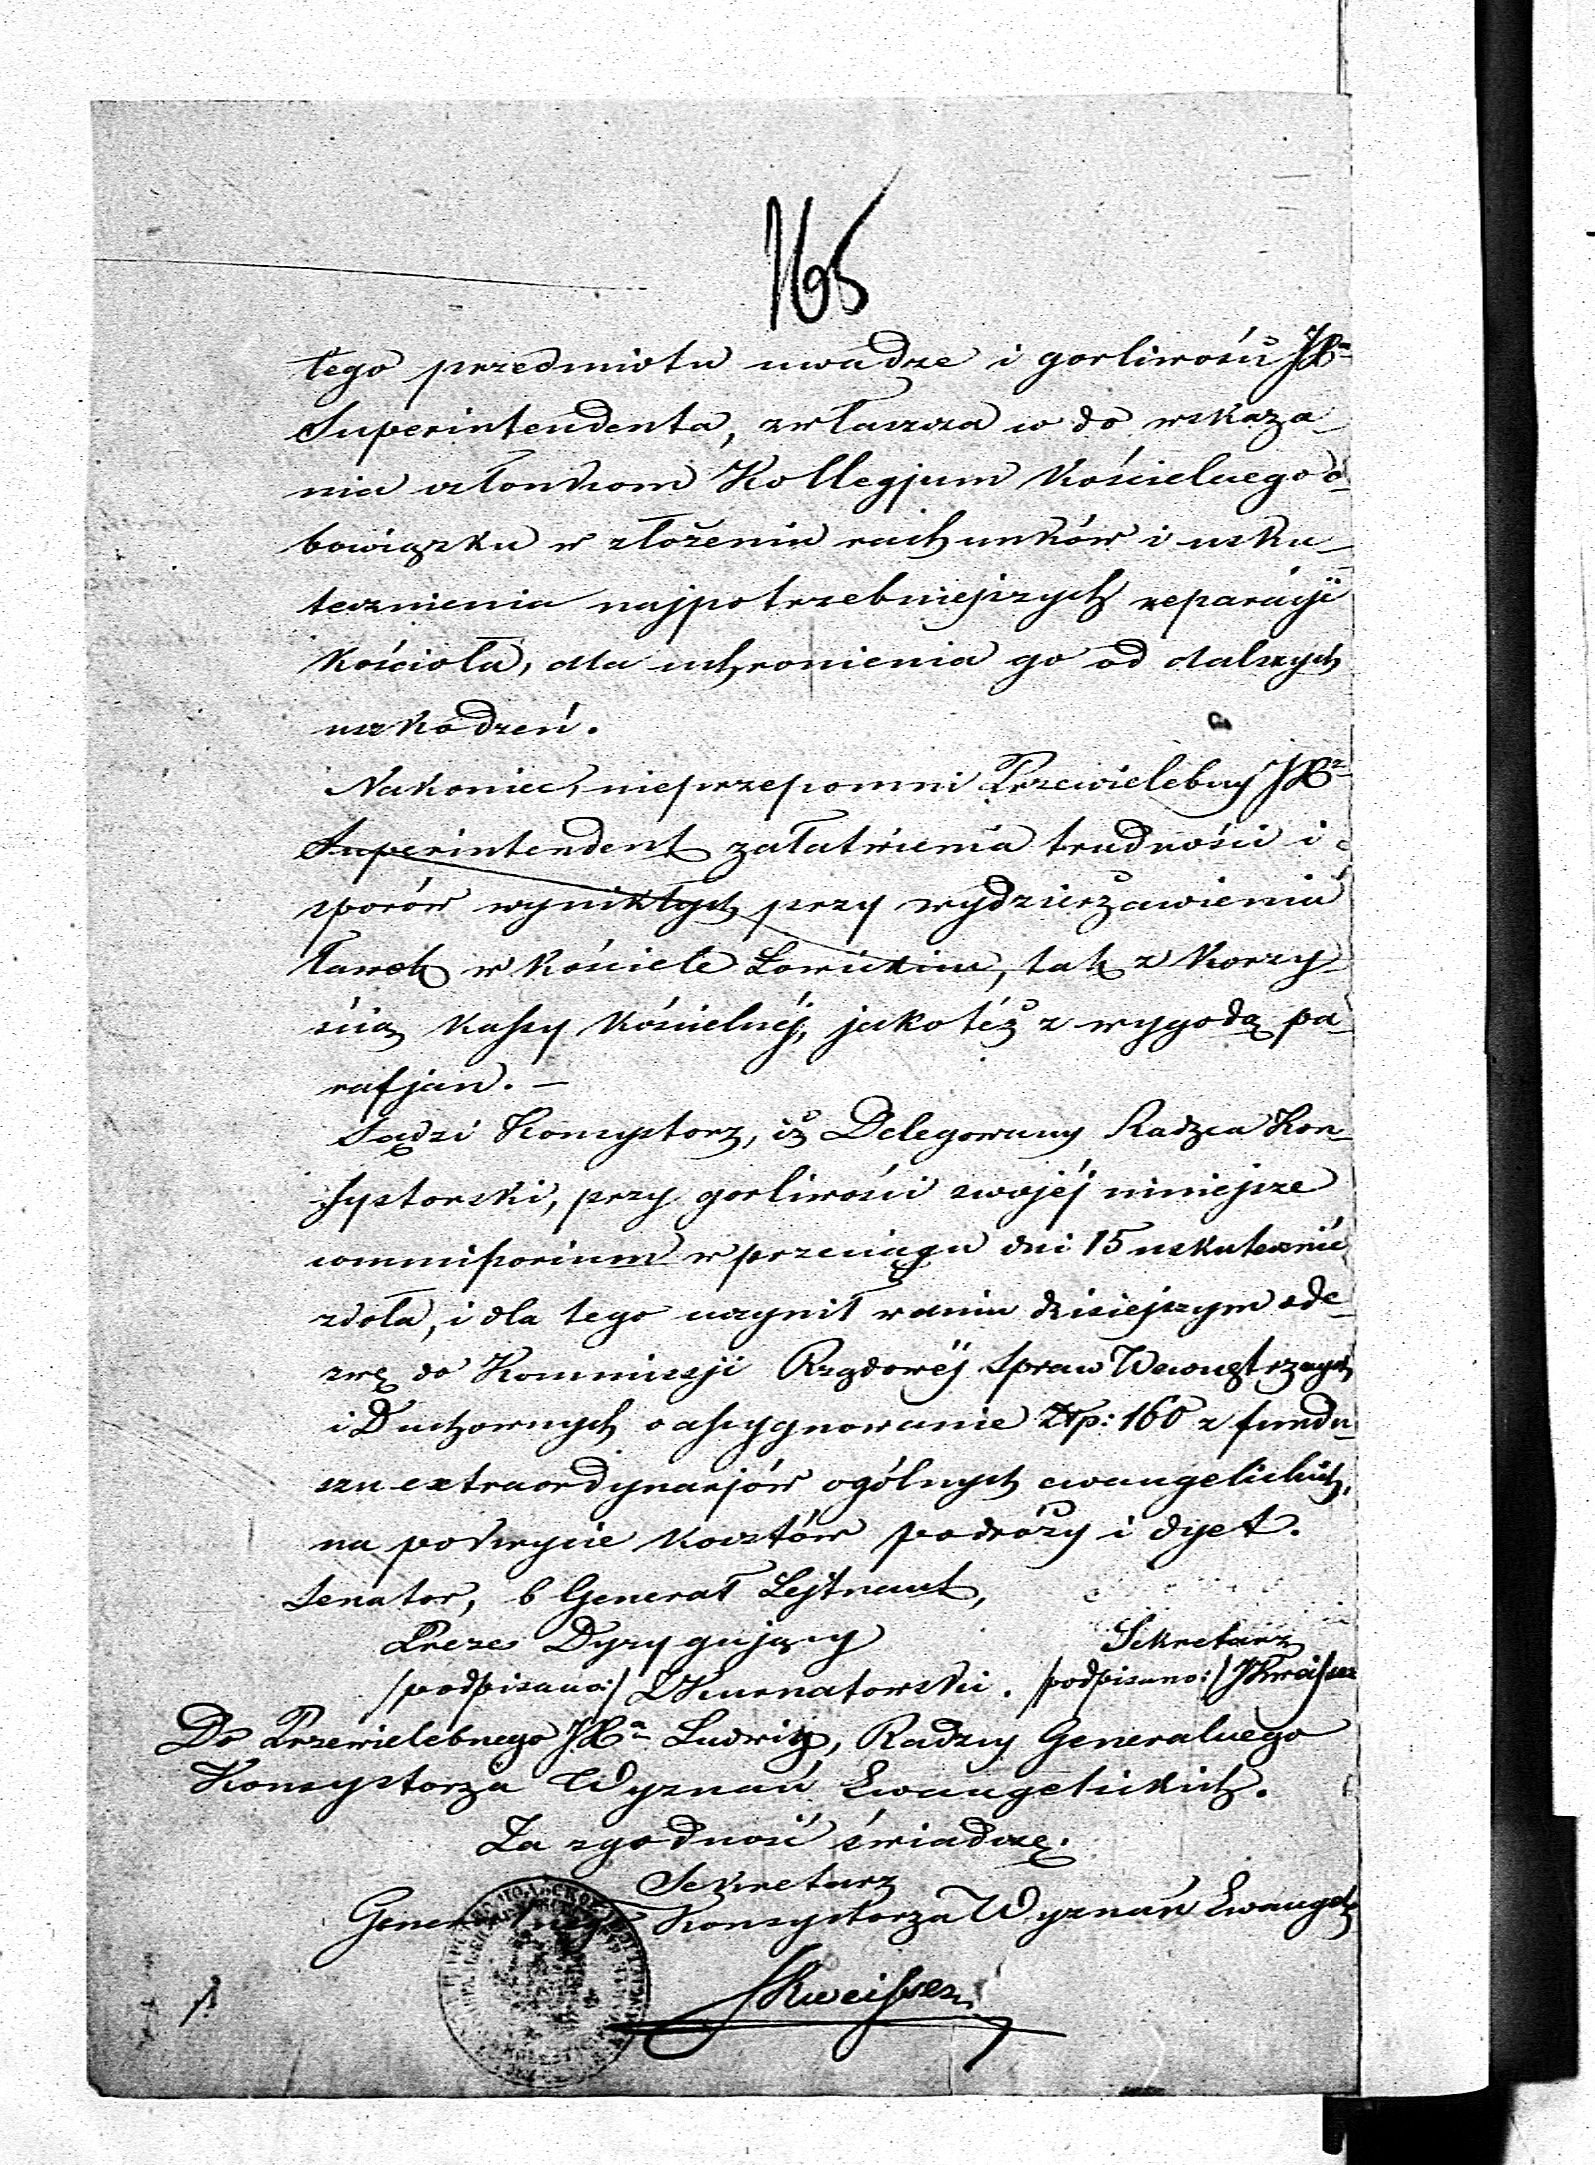 165
tego przedmiotu uwadze i gorliwości JX<sup>a</sup>
Superintendenta, zwłaszcza co do wskaza-
nia członkom Kollegjum Kościelnego o-
bowiązku w złożeniu rachunków i usku-
tecznienia najpotrzebniejszych reparacji
Kościoła, dla uchronienia go od dalszych
uszkodzeń.
Nakoniec, nieprzepomni Przewielebny JX<sup>z</sup>
Superintendent załatwienia trudności i
sporów wynikłych przy wydzierżawieniu
ławek w Kościele Łowickim, tak z korzy-
ścią kassy Kościelnéj, jakotéż z wygodą pa-
rafjan. —
Sądzi Konsystorz, iż Delegowany Radzca Kon-
systorski, przy gorliwości swojéj niniejsze
commissorium w przeciągu dni 15 uskutecznić
zdoła, i dla tego uczynił w dniu dzisiejszym ode-
zwę do Kommissji Rządowéj Spraw Wewnętrznych
i Duchownych o assygnowanie Złp: 160 z fundu-
szu extraordynarjów ogólnych ewangelickich,
na pokrycie kosztów podróży i dyet.
Senator, b Generał Lejtnant,
Prezes Dyrygujący
Sekretarz
/podpisano:/ Kurnatowski. /podpisano:/ Kweisser
Do Przewielebnego JX<sup>a</sup> Ludwig, Radzcy Generalnego
Konsystorza Wyznań Ewangelickich.
Za zgodność świadczę.
Sekretarz
Generalnego Konsystorza Wyznań Ewangel
Kweisser